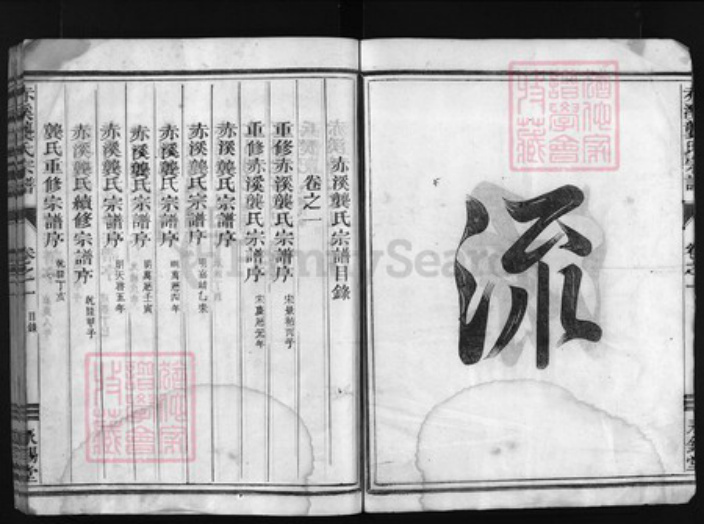 流
赤溪龔氏宗譜目錄
卷之一
重修赤溪龔氏宗譜序 宋景祐丙子
重修赤溪龔氏宗譜序 宋慶曆元年
赤溪龔氏宗譜序
赤溪龔氏宗譜序 明嘉靖乙未
赤溪龔氏宗譜序 明萬曆四年
赤溪龔氏宗譜序 明萬曆壬寅
赤溪龔氏宗譜序 明天啓五年
赤溪龔氏續修宗譜序 乾隆甲子
龔氏重修宗譜序 乾隆丁亥
赤溪龔氏宗譜
卷之一
目錄
FamilySearch